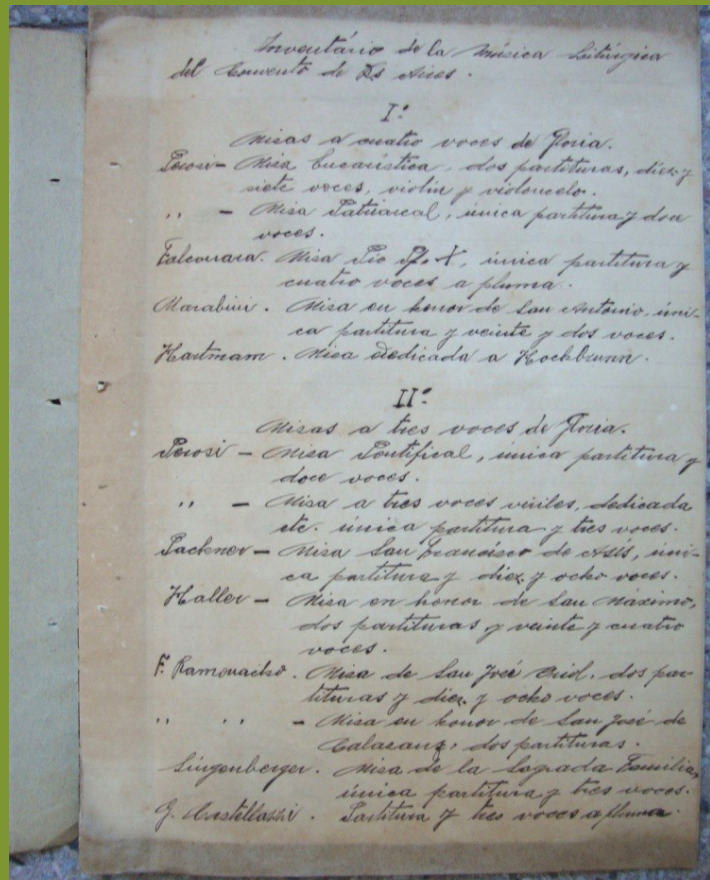 Inventário de la Música Litúrgica
del Convento de Bs Aires.
I.º
Misas a cuatro voces de Gloria.
Perosi - Misa Eucarística, dos partituras, diez y
siete voces, violin y violoncelo.
,, - Misa Patriarcal, única partitura y
voces.
Falconara. Misa Pio P. X, única partitura y
cuatro voces a pluma.
Marabini. Misa en honor de San Antonio, úni-
ca partitura y veinte y dos voces.
Hartmam. Misa dedicada a Hochbrunn.
II.º
Misas a tres voces de Gloria.
Perosi - Misa Pontifical, única partitura y
doce voces.
,, - Misa a tres voces viriles, dedicada
etc. única partitura y tres voces.
Packner - Misa San Francisco de Asís, úni-
ca partitura y diez y ocho voces.
Haller - Misa en honor de San Máximo,
dos partituras y veinte y cuatro
voces.
F. Misa de San José dos par-
tituras y diez y ocho voces.
,, ,, - Misa en honor de San José de
Calasanz, dos partituras.
Singenberger. Misa de la Sagrada Familia,
única partitura y tres voces.
G. Partitura y tres voces a pluma.